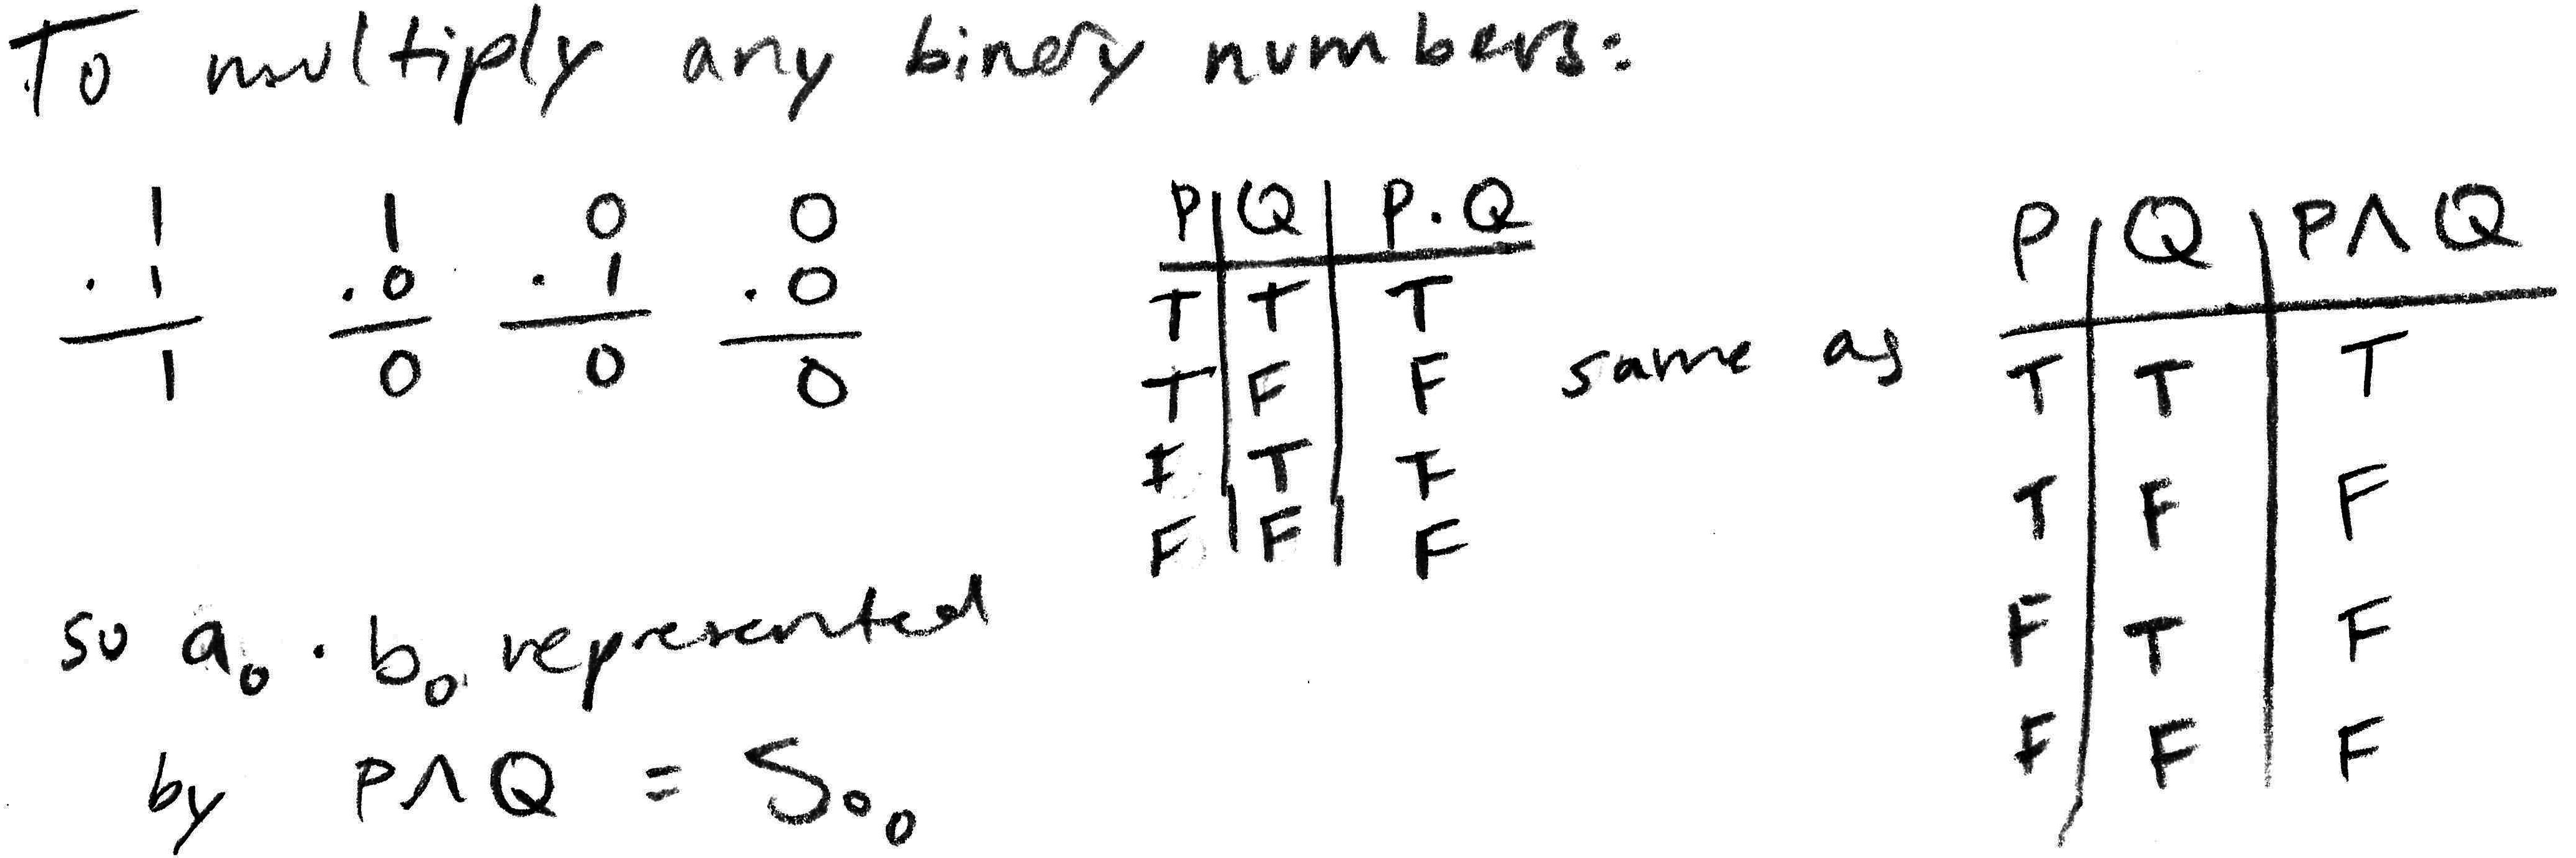 To multiply any binary numbers:
1 1 0 0
. 1 . 0 . 1 . 0
1 0 0 0
P Q P . Q
T T T
T F F
F T F
F F F
same as
P Q P ∧ Q
T T T
T F F
F T F
F F F
so a₀ · b₀ represented
by P ∧ Q = S₀₀